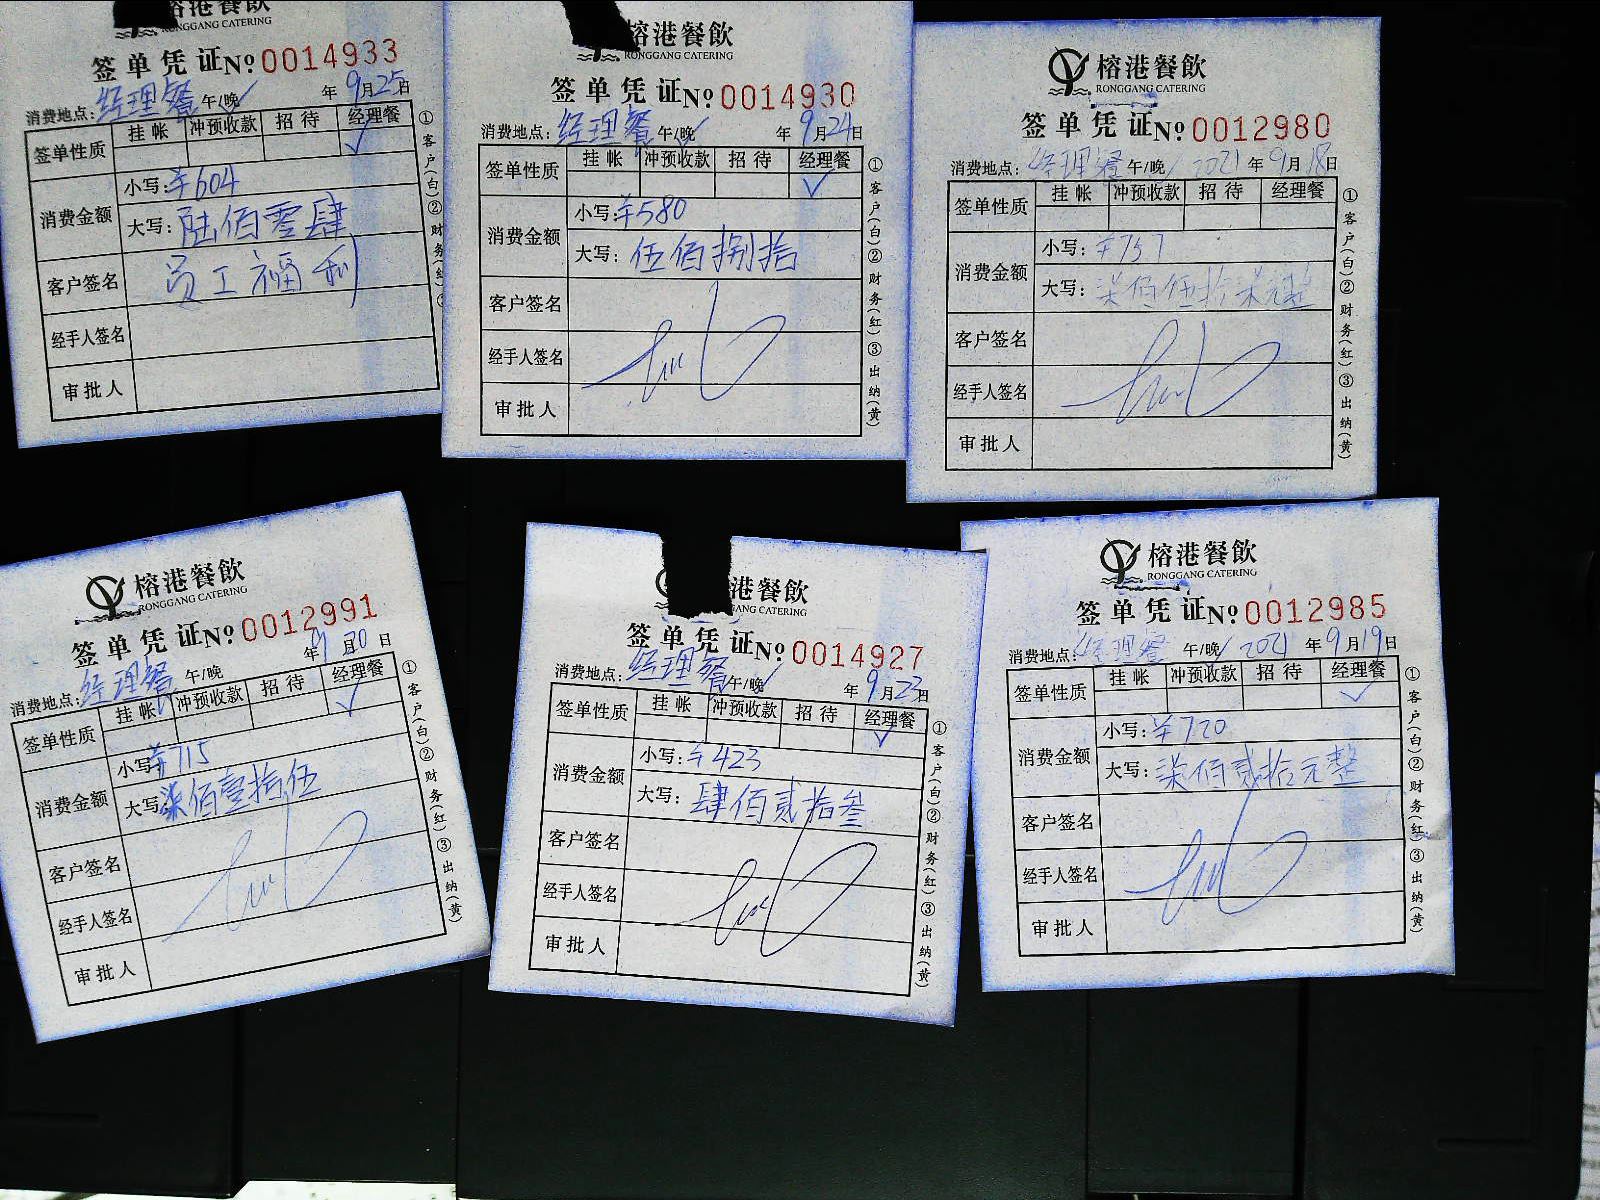 榕港餐飲
RONGGANG CATERING
签单凭证№0014933
消费地点:经理餐 午/晚✓ 年9月25日
签单性质 挂帐 冲预收款 招待 经理餐
✓
消费金额 小写:¥604
大写:陆佰零肆
客户签名 员工福利
经手人签名
审批人
①客户(白)②财务(红)
榕港餐飲
RONGGANG CATERING
签单凭证№0014930
消费地点:经理餐 午/晚✓ 年9月24日
签单性质 挂帐 冲预收款 招待 经理餐
✓
消费金额 小写:¥580
大写:伍佰捌拾
客户签名
经手人签名
审批人
①客户(白)②财务(红)③出纳(黄)
榕港餐飲
RONGGANG CATERING
签单凭证№0012980
消费地点:经理餐 午/晚✓ 2021年9月18日
签单性质 挂帐 冲预收款 招待 经理餐
消费金额 小写:¥757
大写:柒佰伍拾柒元整
客户签名
经手人签名
审批人
①客户(白)②财务(红)③出纳(黄)
榕港餐飲
RONGGANG CATERING
签单凭证№0012991
消费地点:经理餐 午/晚 年9月日
签单性质 挂帐 冲预收款 招待 经理餐
✓
消费金额 小写:¥715
大写:柒佰壹拾伍
客户签名
经手人签名
审批人
①客户(白)②财务(红)③出纳(黄)
港餐飲
GANG CATERING
签单凭证№0014927
消费地点:经理餐 午/晚✓ 年9月日
签单性质 挂帐 冲预收款 招待 经理餐
✓
消费金额 小写:¥423
大写:肆佰贰拾叁
客户签名
经手人签名
审批人
①客户(白)②财务(红)③出纳(黄)
榕港餐飲
RONGGANG CATERING
签单凭证№0012985
消费地点:经理餐 午/晚✓ 2021年9月19日
签单性质 挂帐 冲预收款 招待 经理餐
✓
消费金额 小写:¥720
大写:柒佰贰拾元整
客户签名
经手人签名
审批人
①客户(白)②财务(红)③出纳(黄)